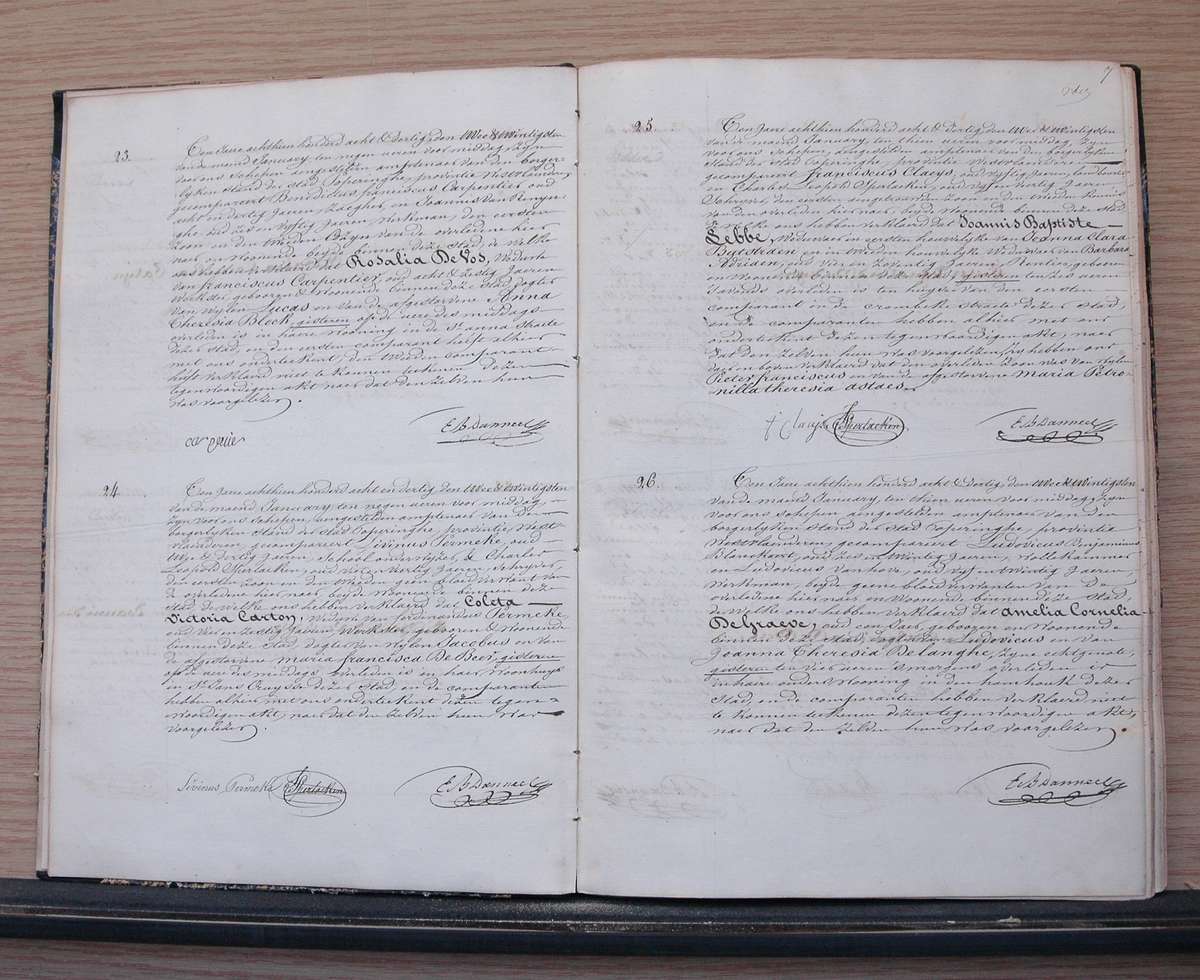 23.
Een Jaere achthien honderd acht & dertig den twee & twintigsten
van de maend January, ten negen ueren voor middag zyn
voor ons schepen aengestelden amptenaer van den borger-
lyken stand der stad Poperinghe provintie Westvlaenderen
gecompareert Benedictus franciscus Carpentier oud
acht en dertig Jaeren, Zaegher, en Joannes Van
oud zes en vyftig Jaeren, Werkman, den eersten
Zoon en den tweeden van de overledene hier
naer en Woonende beyde binnen deze stad, de Welke
ons hebben verklaerd dat Rosalia DeVos, Weduwe
van franciscus Carpentier oud acht & zestig Jaeren
Werkster gebooren & Woonende binnen deze stad dogter
van Wylen Lucas en van de afgestorvene Anna
Theresia Block, gisteren op d' uere des middags
overleden is in haere Wooning in de St anna straete
dezer stad, en den eersten comparant heeft alhier
met ons onderteekent, den tweeden comparant
heeft verklaerd niet te konnen teekenen dezen
tegenwoordigen akt naer dat den zelven hun
Was voorgelezen.
carpentier
E. B. Danneel
24.
Een Jaere achthien honderd acht en dertig den twee & twintigsten
van de maend January ten negen ueren voor middag
zyn voor ons schepen, aengestelden amptenaer van den
borgerlyken stand der stad Poperinghe, provintie West
vlaenderen, gecompareert Livinus Permeke, oud
en dertig Jaeren, schoolonderwyzer, & Charles
Leopold Sperlacken, oud veertig Jaeren schryver,
den eersten zoon en den tweeden geen bloedverwant van
de overledene hier naer beyde Woonende binnen deze
stad de Welke ons hebben verklaerd dat Coleta
Victoria Carton, Weduwe van ferdinandus Permeke,
oud vier en zestig Jaeren, Werkster, gebooren & Woonende
binnen deze stad, dogter van Wylen Jacobus en van
de afgestorvene maria francisca De Beer, gisteren
op d' uere des middags overleden is in haer Woonhuys
in St Jans Cruysse dezer stad, en de comparanten
hebben alhier met ons onderteekent dezen tegen-
Woordigen akt, naer dat den zelven hun Was
voorgelezen.
Livinus Permeke
Sperlacken
E. B. Danneel
7
25.
Een Jaere achthien honderd acht & dertig den twee & twintigsten
van de maend January, ten thien ueren voor middag zyn
voor ons schepen aengestelden amptenaer van den borgerlyken
stand der stad Poperinghe, provintie Westvlaenderen
gecompareert franciscus Claeys, oud vyftig Jaeren, landbouwer
en Charles Leopold Sperlacken, oud veertig Jaeren
schryver, den eersten en den tweeden kennis
van den overleden hier naer, beyde Woonende binnen deze stad
de Welke ons hebben verklaerd dat Joannis Baptiste
Lebbe, Weduwaer in eersten houwelyke van Joanna Clara
en in tweeden houwelyke Weduwaer van Barbara
Adriaen, oud Jaeren, Rentier gebooren
& Woonende binnen deze stad, gisteren ten zes ueren
's avonds overleden is ten huyse van den eersten
comparant in de cromelke straete dezer stad,
en de comparanten hebben alhier met ons
onderteekent dezen tegenwoordigen akt, naer
dat den zelven hun Was voorgelezen, zy hebben ons
daer en boven verklaerd dat den overleden zoon was van Wylen
Pieter franciscus en van de afgestorvene maria Petro-
nilla theresia astaes.
f Claeys
Sperlacken
E. B. Danneel
26.
Een Jaere achthien honderd acht & dertig, den twee & twintigsten
van de maend January, ten thien ueren voor middag, zyn
voor ons schepen aengestelden amptenaer van den
borgerlyken stand der stad Poperinghe, provintie
Westvlaenderen, gecompareert Ludovicus Benjaminus
Blanckaert, oud zes en twintig Jaeren, Wollekammer
en Ludovicus Vanhove, oud vyf en twintig Jaeren,
Werkman, beyde geene bloedverwanten van de
overledene hier naer en Woonende binnen deze stad,
de Welke ons hebben verklaerd dat Amelia Cornelia
DeGraeve, oud een Jaer gebooren en Woonende
binnen deze stad, dogter van Ludovicus en van
Joanna Theresia Delanghe, zyne echtgenote,
gisteren ten vier ueren 's morgens overleden is
in haere ouders Wooning in den henhoek dezer
stad, en de comparanten hebben verklaerd niet
te konnen teekenen dezen tegenwoordigen akt,
naer dat den zelven hun Was voorgelezen.
E. B. Danneel